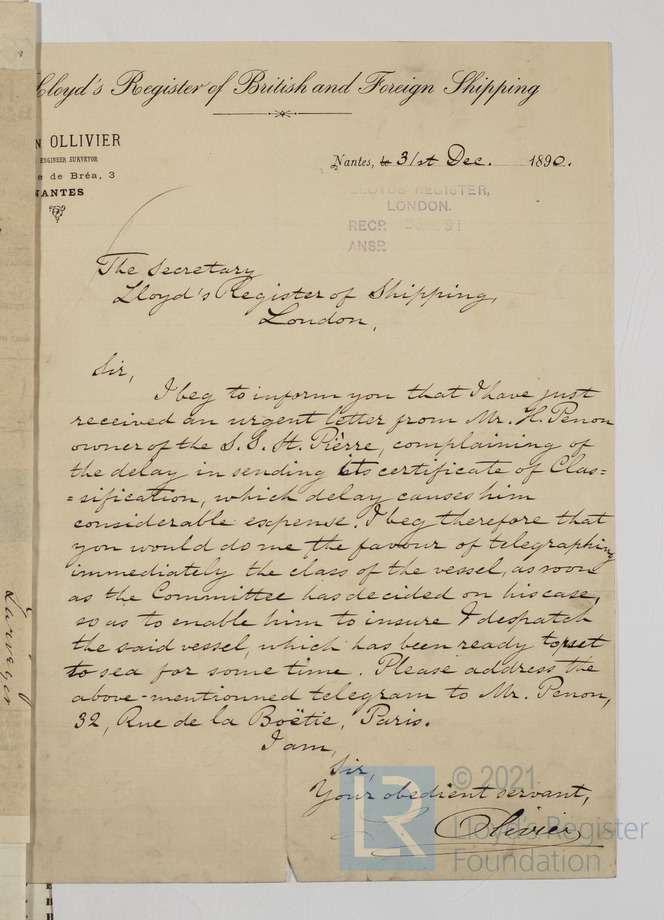 Lloyd's Register of British and Foreign Shipping
N OLLIVIER
ENGINEER SURVEYOR
e de Bréa, 3
NANTES
Nantes, le 31st Dec. 1890.
LLOYDS REGISTER,
LONDON.
RECD
ANSD
The Secretary
Lloyd's Register of Shipping,
London,
Sir,
I beg to inform you that I have just
received an urgent letter from Mr. H. Penon
owner of the S. G. St. Pièrre, complaining of
the delay in sending its certificate of Clas=
=sification, which delay causes him
considerable expense. I beg therefore that
you would do me the favour of telegraphing
immediately the class of the vessel, as soon
as the Committee has decided on his case,
so as to enable him to insure & despatch
the said vessel, which has been ready to set
to sea for some time. Please address the
above-mentionned telegram to Mr. Penon,
32, Rue de la Boëtie, Paris.
I am,
Sir,
Your obedient servant,
Ollivier
Surveyor
LR
© 2021
Lloyd's Register
Foundation